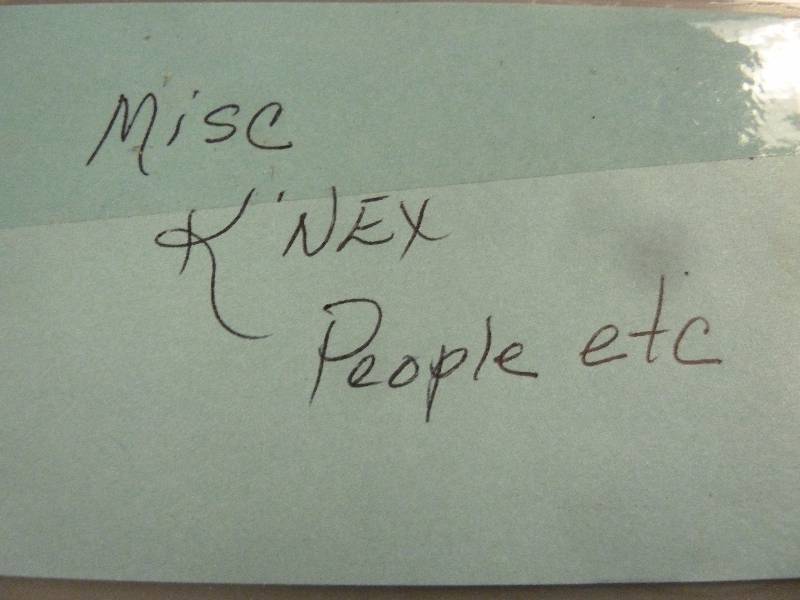 Misc
K'NEX
People etc